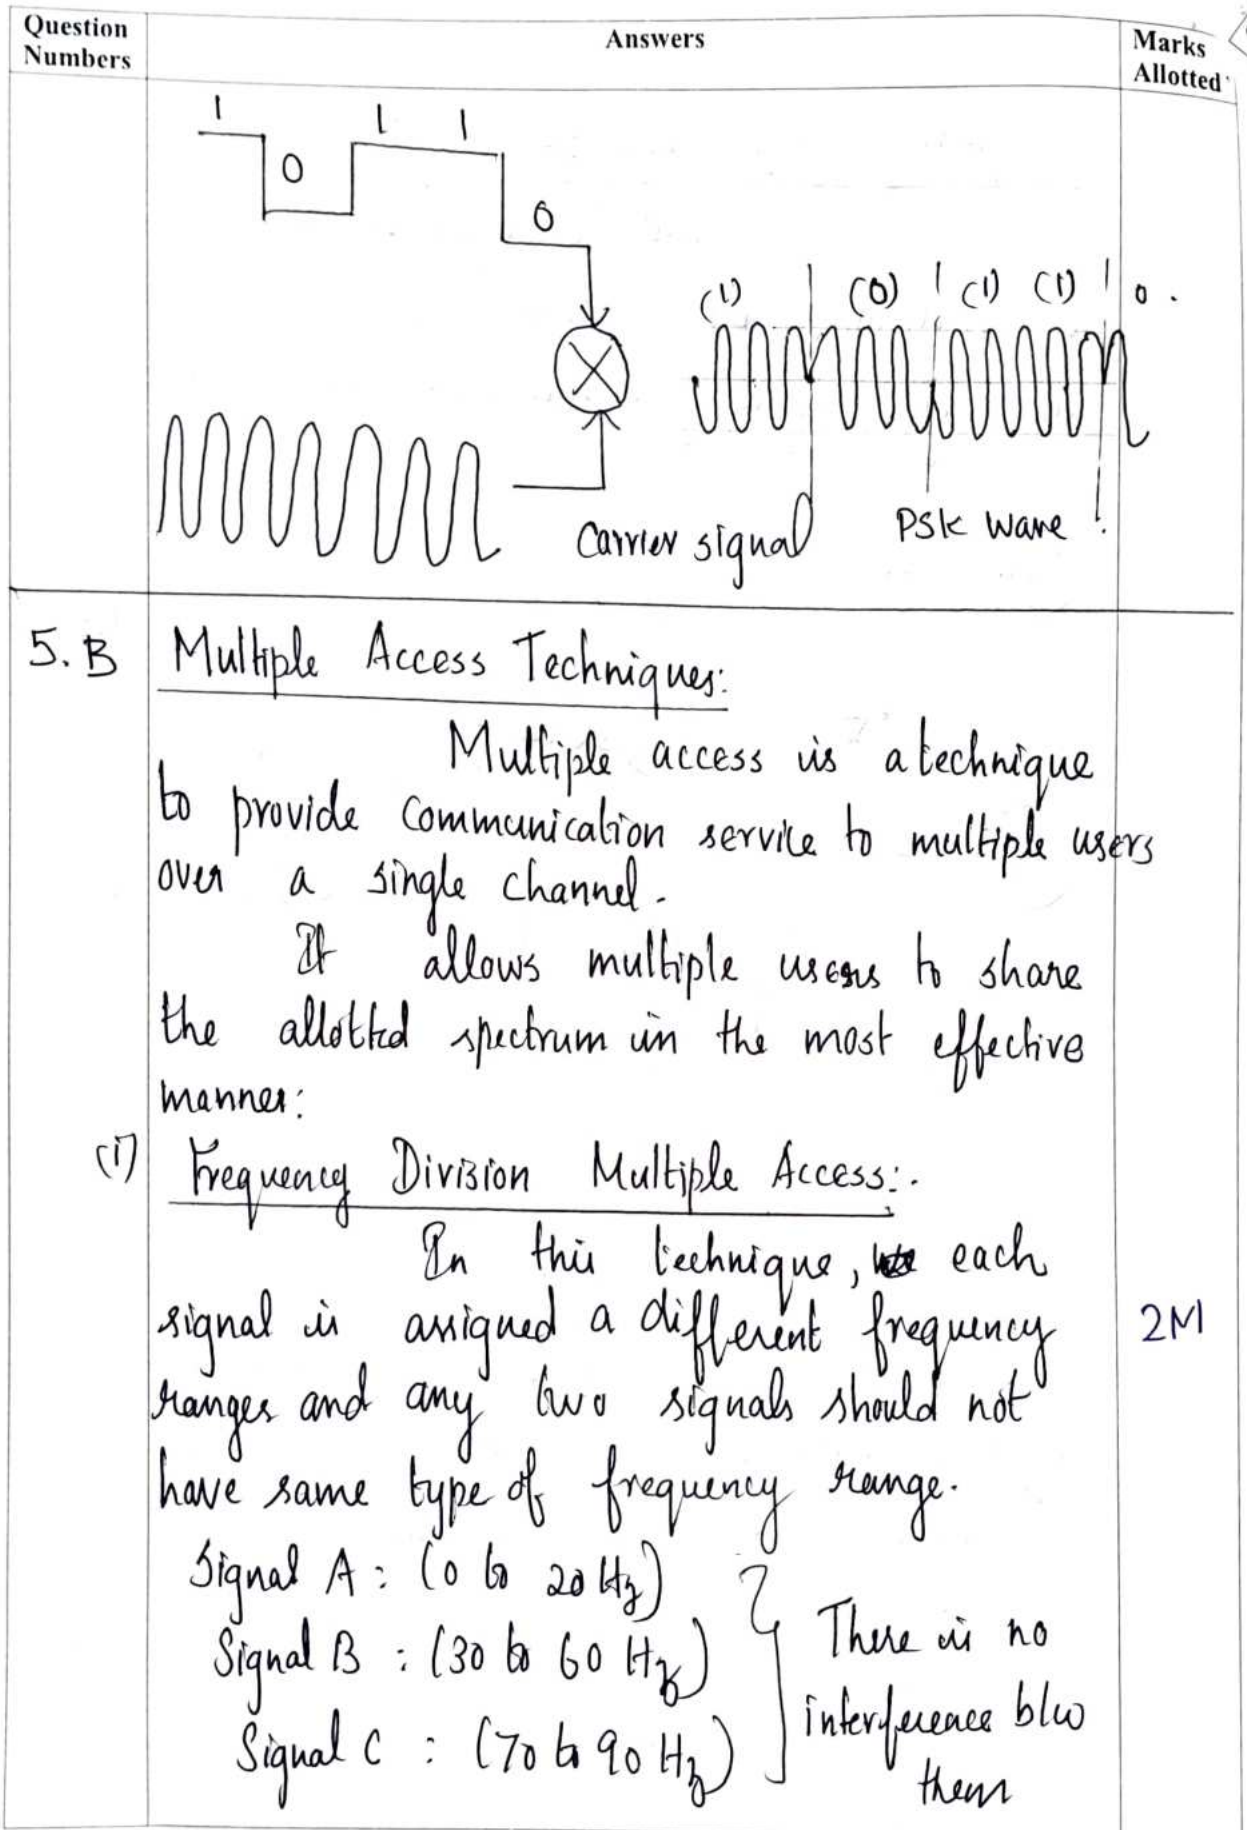 Question Numbers
Answers
Marks Allotted
1
0
1 1
0
(1) (0) (1) (1) 0.
Carrier signal
PSK wave
5.B
Multiple Access Techniques:
Multiple access is a technique
to provide communication service to multiple users
over a single channel.
It allows multiple users to share
the allotted spectrum in the most effective
manner:
(i) Frequency Division Multiple Access:.
In this technique, each
signal is assigned a different frequency
2M
ranges and any two signals should not
have same type of frequency range.
Signal A : (0 to 20 Hz)
Signal B : (30 to 60 Hz)
Signal C : (70 to 90 Hz)
There is no
interference b/w
them